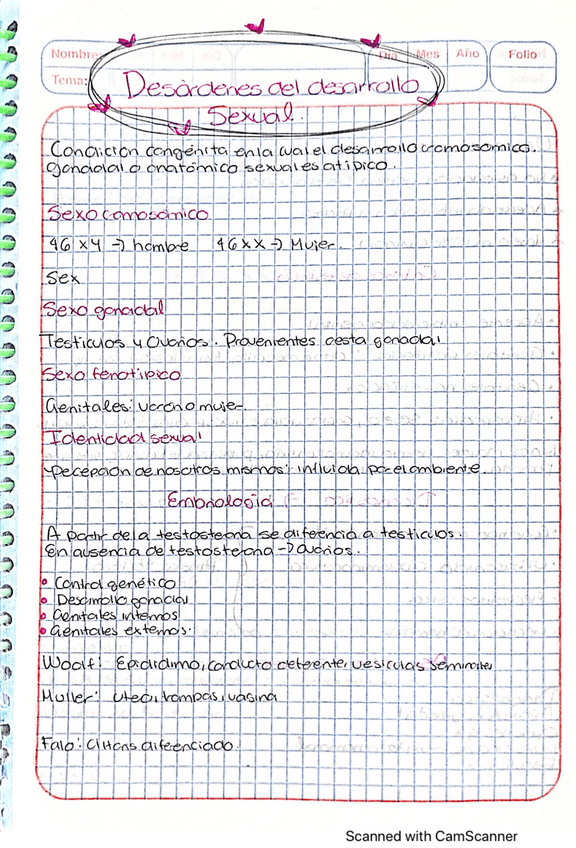 Nombre:
Día Mes Año Folio
Tema:
Desórdenes del desarrollo
Sexual.
Condición congénita en la cual el desarrollo cromosomico.
gonadal o anatómico sexual es atipico.
Sexo comosómico
46 XY -> hombre 46 XX -> Mujer.
Sex
Sexo gonadal
Testiculos y Ovarios. Provenientes cresta gonadal
Sexo fenotipico
Genitales: varon o mujer.
Identidad sexual
Pecepción de nosotros mismos: influida por el ambiente.
Embriologia
A partir de la testosteona se difeencia a testiculos.
En ausencia de testosteona -> ovarios.
• Control genético
• Desarrollo gonadal
• Genitales internos
• Genitales externos.
Woolf: Epididimo, conducto deferente, vesiculas seminales
Muller: Uteo, trompas, vagina
Falo: Clitoris difeenciado.
Scanned with CamScanner